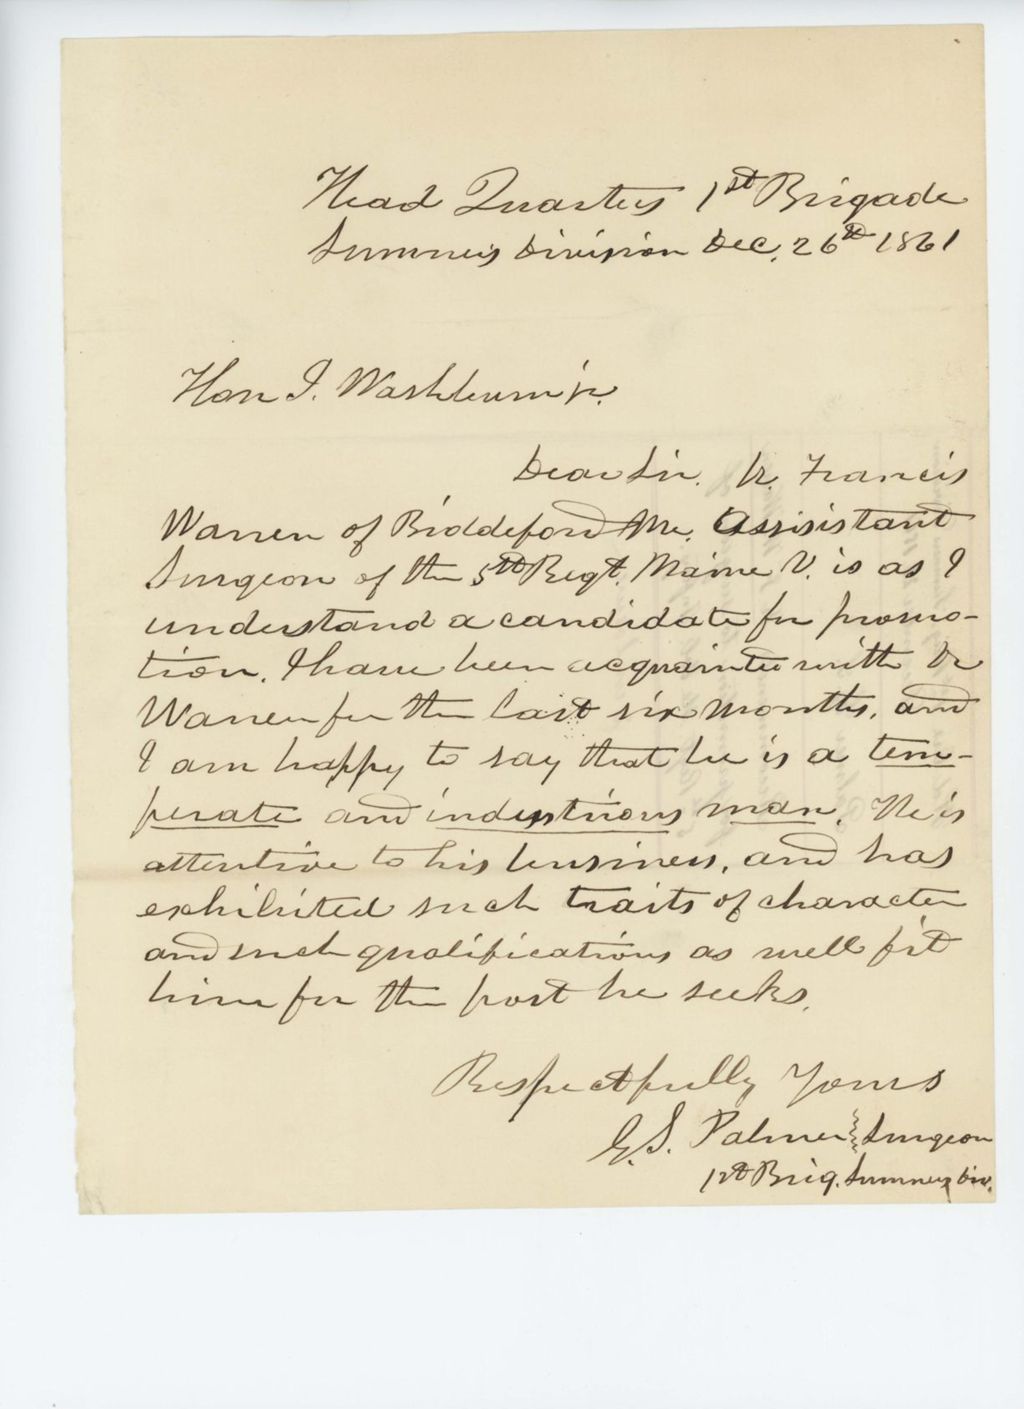 Head Quarters 1st Brigade
Sumner's Division Dec. 26th 1861
Hon I. Washburn jr.
Dear Sir. Dr. Francis
Warren of Biddeford Me. Assisistant
Surgeon of the 5th Regt. Maine V. is as I
understand a candidate for promo-
tion. I have been acquainted with Dr
Warren for the last six months, and
I am happy to say that he is a tem-
perate and industrious man. He is
attentive to his business, and has
exhibited such traits of character
and such qualifications as well fit
him for the post he seeks.
Respectfully Yours
G. S. Palmer Surgeon
1st Brig. Sumner's Div.